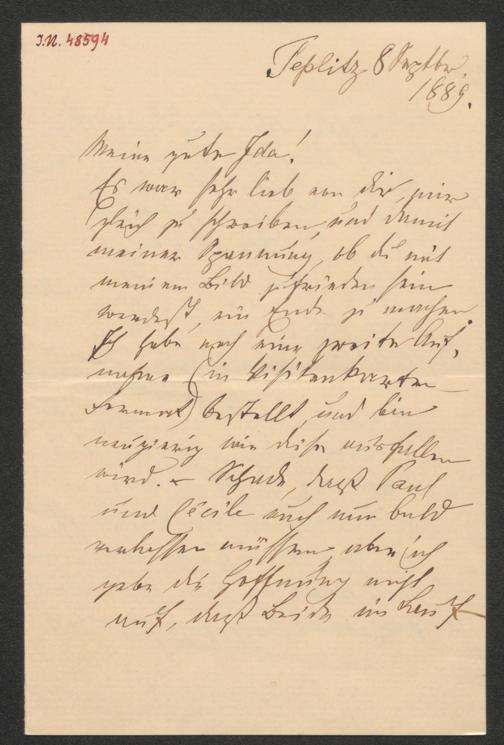 J.N. 48594
Teplitz 8 Septbr.
1889.
Meine gute Ida!
Es war sehr lieb von dir, mir
gleich zu schreiben, und damit
meiner Spannung, ob du mit
meinem Bild zufrieden sein
werdest, ein Ende zu machen
Ich habe noch eine zweite Auf-
nahme (in Visitenkarten-
Format) bestellt, und bin
neugierig wie diese ausfallen
wird. – Schade, daß Paul
und Cécile euch nun bald
verlassen müssen, aber ich
gebe die Hoffnung nicht
auf, daß Beide im Lauf